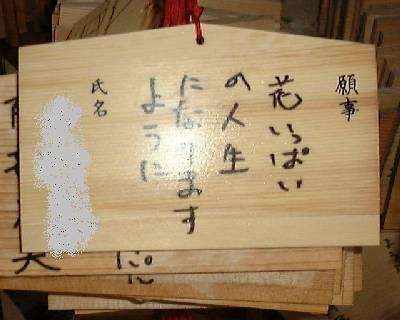 願事
花いっぱい
の人生
になります
ように
氏名